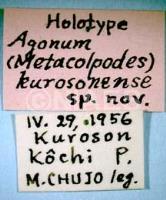 Holotype
Agonum
(Metacolpodes)
kurosonense
sp. nov.
IV. 29, 1956
Kuroson
Kôchi P.
M. CHUJO leg.